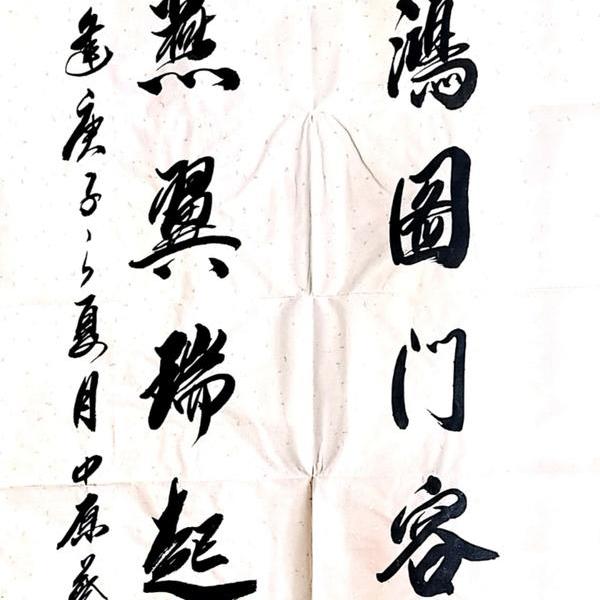 鴻圖门容
燕翼瑞起
逢庚子之夏月中原